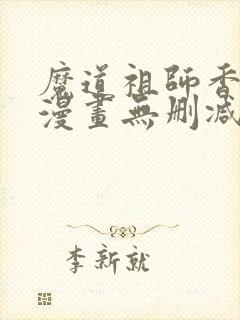 魔道祖師香
漫畫無刪減
李新就